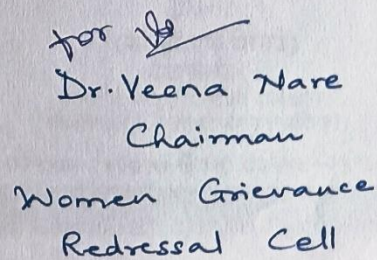 for
Dr. Veena Nare
Chairman
Women Grievance
Redressal Cell